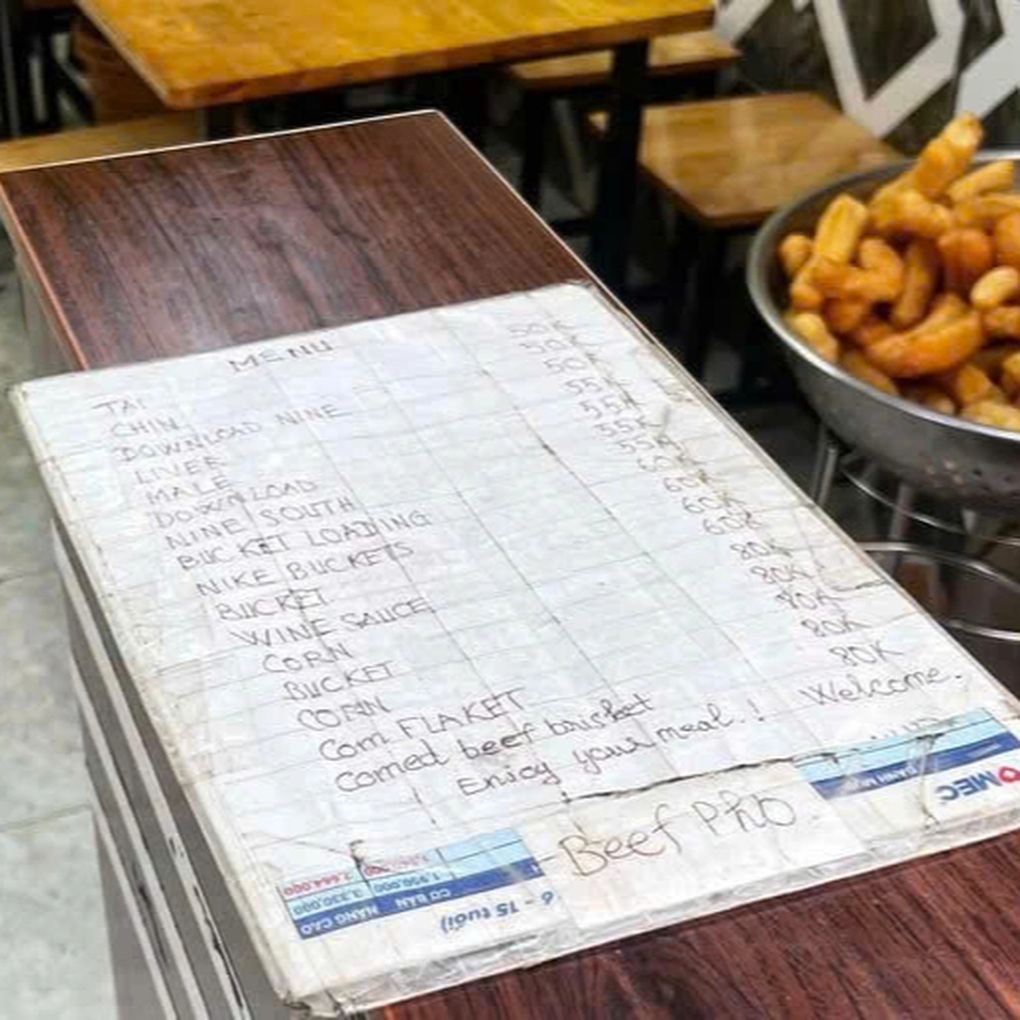 MENU
TAI 50K
CHIN 50K
DOWNLOAD NINE 50K
LIVER 55K
MALE 55K
DOWNLOAD 55K
NINE SOUTH 55K
BUCKET LOADING 60K
NIKE BUCKETS 60K
BUCKET 60K
WINE SAUCE 60K
CORN 80K
BUCKET 80K
CORN 80K
Corn FLAKET 80K
Corned beef brisket 80K
Enjoy your meal.! Welcome.
-Beef Phở.
MEC
6 - 15 tuổi)
CƠ BẢN NÂNG CAO